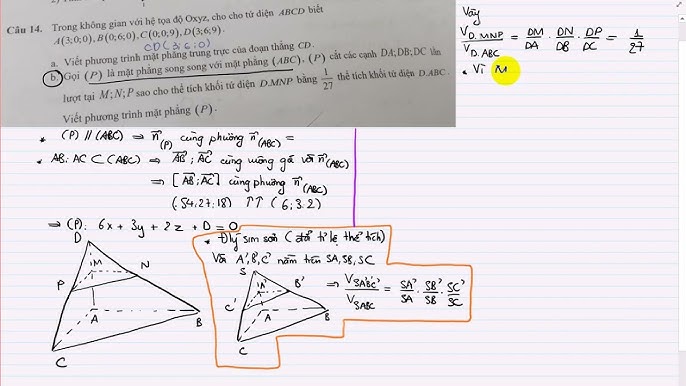 Câu 14. Trong không gian với hệ tọa độ Oxyz, cho cho tứ diện ABCD biết
A(3;0;0), B(0;6;0), C(0;0;9), D(3;6;9).
CD(3;6;0)
a. Viết phương trình mặt phẳng trung trực của đoạn thẳng CD.
b. Gọi (P) là mặt phẳng song song với mặt phẳng (ABC), (P) cắt các cạnh DA; DB; DC lần
lượt tại M; N; P sao cho thể tích khối tứ diện D.MNP bằng 1/27 thể tích khối tứ diện D.ABC.
Viết phương trình mặt phẳng (P).
Vậy
V_D.MNP / V_D.ABC = DM/DA . DN/DB . DP/DC = 1/27
• Vì M
* (P) // (ABC) ⇒ n⃗(P) cùng phương n⃗(ABC) =
• AB; AC ⊂ (ABC) ⇒ AB⃗; AC⃗ cùng vuông góc với n⃗(ABC)
⇒ [AB⃗; AC⃗] cùng phương n⃗(ABC)
(54; 27; 18) ↑↑ (6; 3; 2)
⇒ (P): 6x + 3y + 2z + D = 0
D
M
N
P
A
B
C
* Đlý sim sơn (đối tỉ lệ thể tích)
Với A', B', C' nằm trên SA, SB, SC
⇒ V_SA'B'C' / V_SABC = SA'/SA . SB'/SB . SC'/SC
S
A'
B'
C'
A
B
C